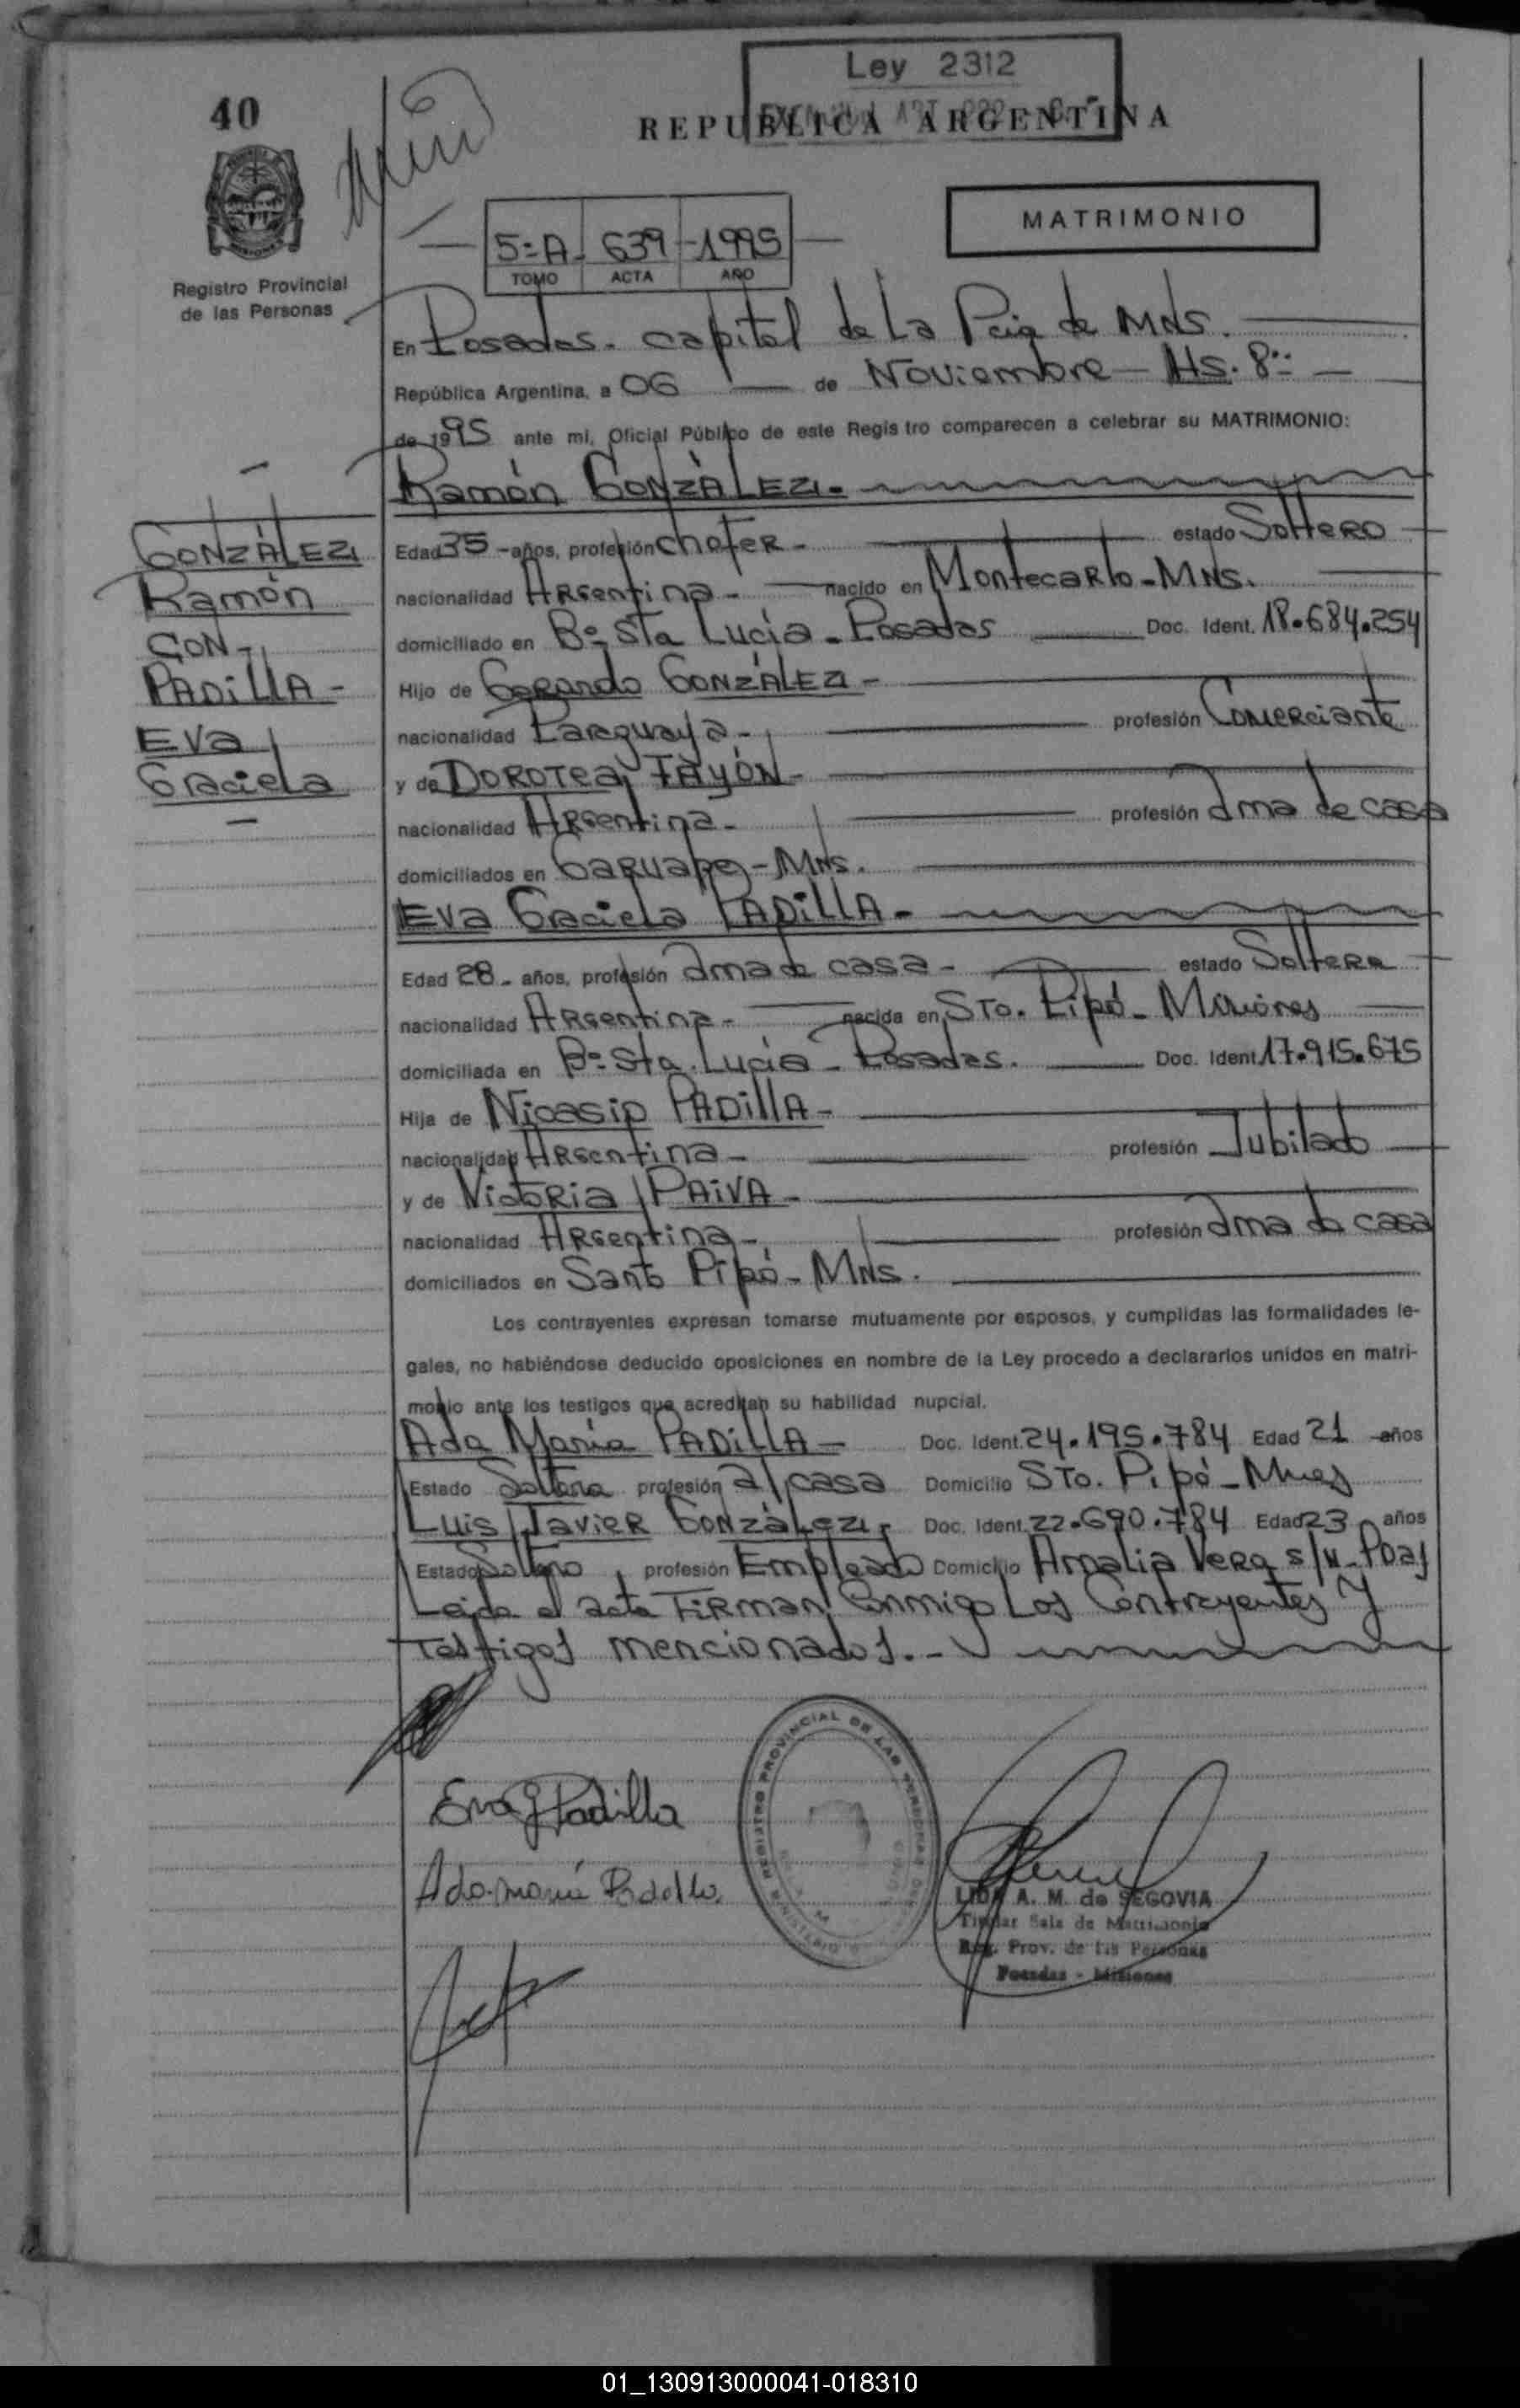 Ley 2312
40
REPUBLICA ARGENTINA
MATRIMONIO
5=A- 639 -1995
TOMO ACTA AÑO
Registro Provincial
de las Personas
En Posadas. capital de La Pcia de MNS.
República Argentina, a 06 de Noviembre - Hs. 8:
de 1995 ante mí, Oficial Público de este Regis tro comparecen a celebrar su MATRIMONIO:
Ramón GONZÀLEZ.-
GONZÀLEZ
Ramón
CON-
PADILLA-
Eva
Graciela
Edad 35 - años, profesión chofer - estado Soltero
nacionalidad Argentina - nacido en Montecarlo - MNS.
domiciliado en Bº Sta Lucía - Posadas Doc. Ident. 18.684.254
Hijo de Gerardo GONZÀLEZ -
nacionalidad Paraguaya - profesión Comerciante
y de DOROTEA FAYÓN -
nacionalidad Argentina - profesión ama de casa
domiciliados en Garuape - MNS.
Eva Graciela PADILLA -
Edad 28 - años, profesión ama de casa - estado Soltera
nacionalidad Argentina - nacida en STO. Pipó - Misiones
domiciliada en Bº Sta. Lucía - Posadas. Doc. Ident. 17.915.675
Hija de Nicasio PADILLA -
nacionalidad Argentina - profesión Jubilado
y de Victoria PAIVA -
nacionalidad Argentina - profesión ama de casa
domiciliados en Santo Pipó - MNS.
Los contrayentes expresan tomarse mutuamente por esposos, y cumplidas las formalidades le-
gales, no habiéndose deducido oposiciones en nombre de la Ley procedo a declararlos unidos en matri-
monio ante los testigos que acreditan su habilidad nupcial.
Ada María PADILLA - Doc. Ident. 24.195.784 Edad 21 - años
Estado Soltera profesión a/casa Domicilio STO. Pipó - Mnes
Luis Javier GONZÀLEZ - Doc. Ident. 22.690.784 Edad 23 años
Estado Soltero profesión Empleado Domicilio Amalia Vera s/N - Pdas
Leida el acta Firman Conmigo Los Contrayentes Y
Testigos mencionados. -
REGISTRO PROVINCIAL DE LAS PERSONAS
Eva G Padilla
Ada María Padilla
LIDA A. M. de SEGOVIA
Titular Sala de Matrimonio
Reg. Prov. de las Personas
Posadas - Misiones
01_130913000041-018310